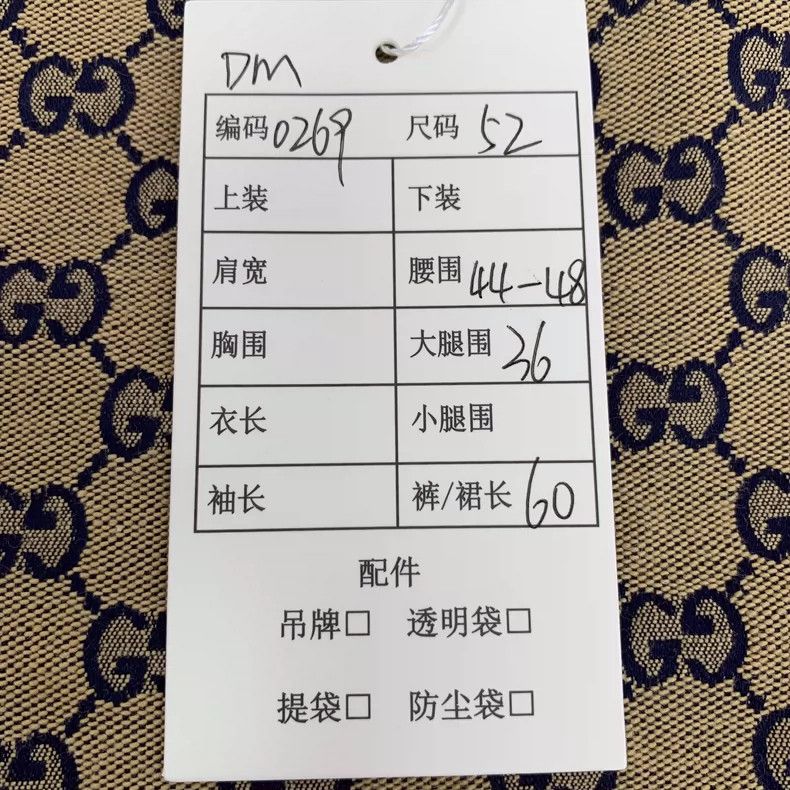 DM
编码 0269 尺码 52
上装 下装
肩宽 腰围 44-48
胸围 大腿围 36
衣长 小腿围
袖长 裤/裙长 60
配件
吊牌□ 透明袋□
提袋□ 防尘袋□